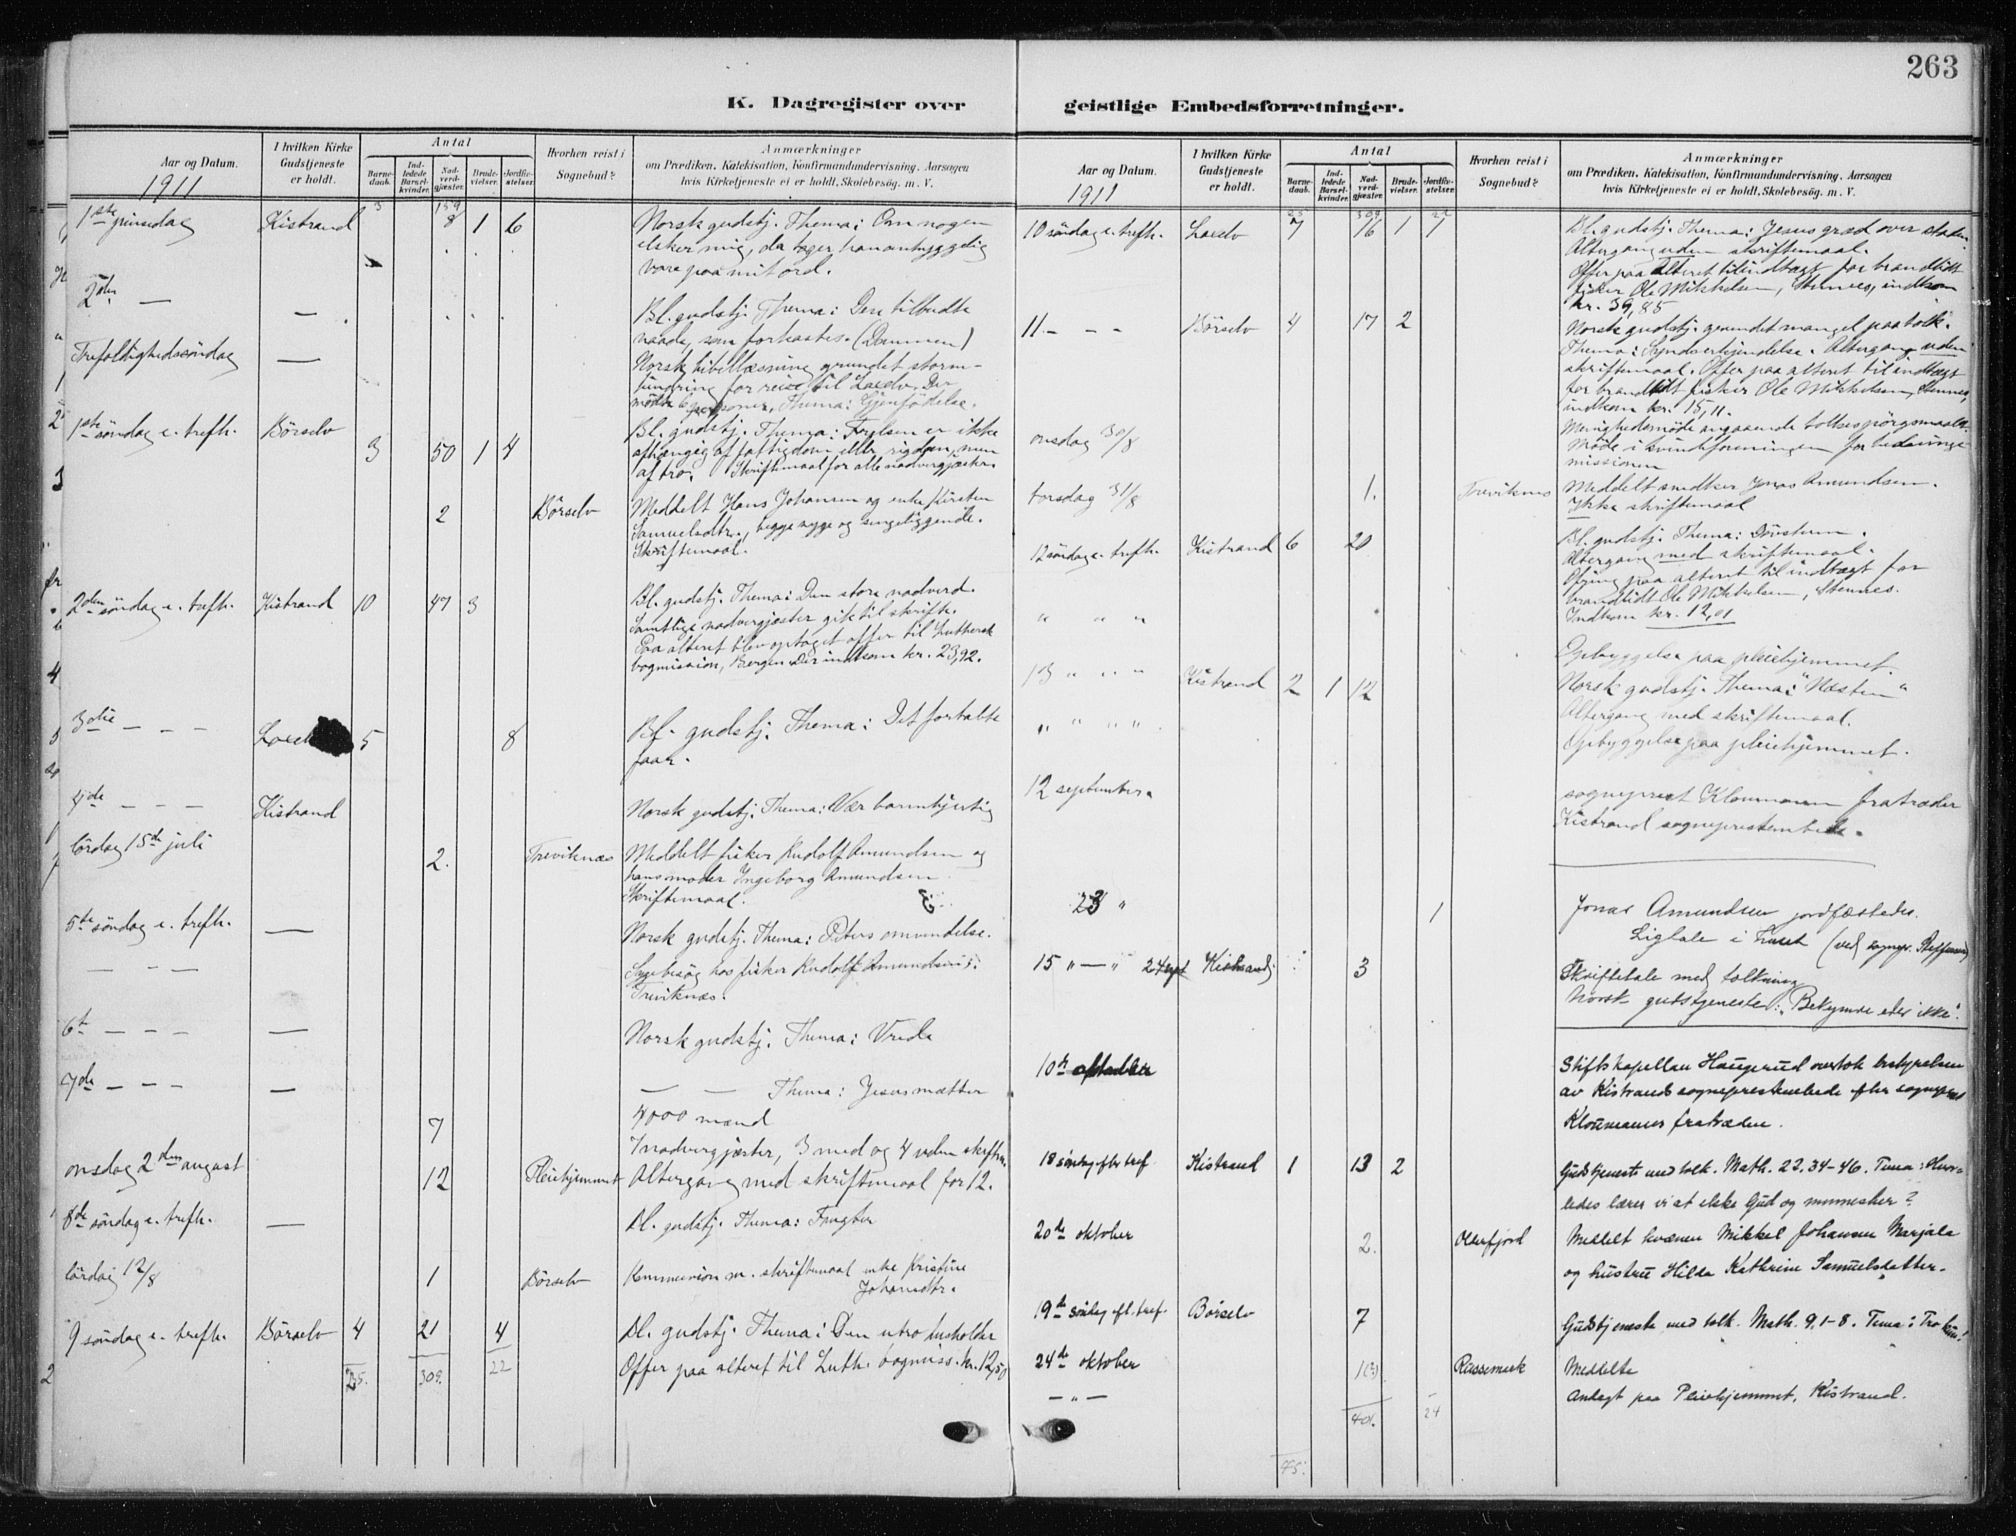 263
K. Dagregister over
geistlige Embedsforretninger.
Aar og Datum.
1911
I hvilken Kirke
Gudstjeneste
er holdt.
Antal
Barne-
daab.
Ind-
ledede
Barsel-
kvinder.
Nad-
verd-
gjæster.
Brude-
vielser.
Jordfæ-
stelser.
Hvorhen reist i
Sognebud?
Anmærkninger
om Prædiken, Katekisation, Konfirmandundervisning, Aarsagen
hvis Kirketjeneste ei er holdt, Skolebesøg. m. V.
3 159
1ste pinsedag Kistrand 8 1 6 Norsk gudstj. Thema: Om nogen
elsker mig, da tager han
vare paa mit ord.
2den — — Bl. gudstj. Thema: Den tilbudte
naade, som forkastes. (Dammen)
Trefoldighedssöndag — Norsk bibellæsning grundet storm-
hindring for reise til Laxelv. Der
mødte 6 personer, Thema: Gjenfödelse.
1ste söndag e. trefh. Börselv 3 50 1 4 Bl. gudstj. Thema: Frelsen er ikke
afhængig af fattigdom eller rigdom, men
af tro. Skriftemaal for alle nadvergjæster.
2 Börselv Meddelt Hans Johansen og enke Kirsten
Samuelsdtr., begge syge og sengeliggende.
Skriftemaal.
2den söndag e. trefh. Kistrand 10 47 3 Bl. gudstj. Thema: Den store nadverd.
Samtlige nadvergjæster gik til skrifte.
Paa alteret blev optaget offer til Luthersk
bogmission, Bergen. Der indkom kr. 23,92.
3die — — — 5 8 Bl. gudstj. Thema: Det fortabte
faar.
4de — — — Kistrand Norsk gudstj. Thema: Vær barmhjertig
lördag 15de juli 2. Treviknæs Meddelt fisker Rudolf Amundsen og
hans moder Ingeborg Amundsen
Skriftemaal.
5te söndag e. trefh. — Norsk gudstj. Thema: Peters omvendelse.
— — — Sygebesög hos fisker Rudolf Amundsen i
Treviknæs.
6te — — — — Norsk gudstj. Thema: Vrede
7de — — — — — — Thema: Jesus mætter
4000 mænd
7 7 nadvergjæster, 3 med og 4 uden skriftm.
onsdag 2den august 12 Pleiehjemmet Altergang med skriftemaal for 12.
8de söndag e. trefh. — Bl. gudstj. Thema: Frugter
lördag 12/8 1 Börselv Kommunion m. skriftemaal enke Kristine
Johansdtr.
9 söndag e. trefh. Börselv 4 21 4 Bl. gudstj. Thema: Den utro husholder
25. 309. 22 Offer paa alteret til Luth. bogmiss. kr. 12,50
Aar og Datum.
1911
I hvilken Kirke
Gudstjeneste
er holdt.
Antal
Barne-
daab.
Ind-
ledede
Barsel-
kvinder.
Nad-
verd-
gjæster.
Brude-
vielser.
Jordfæ-
stelser.
Hvorhen reist i
Sognebud?
Anmærkninger
om Prædiken, Katekisation, Konfirmandundervisning, Aarsagen
hvis Kirketjeneste ei er holdt, Skolebesøg. m. V.
25 309 22
10 söndag e. trefh. Laxelv 7 16 1 1 Bl. gudstj. Thema: Jesus græd over staden.
Altergang uden skriftemaal.
Offer paa alteret til indtægt for brandlidt
fisker Ole Mikkelsen, Stennes, indkom
kr. 39,85
11. — — — Börselv 4 17 2 Norsk gudstj. grundet mangel paa tolk.
Thema: Syndserkjendelse. Altergang uden
skriftemaal. Offer paa alteret til indtægt
for brandlidt fisker Ole Mikkelsen, Stennes,
indkom kr. 15,11.
onsdag 30/8 Menighedsmöde angaaende tolkespörgsmaalet.
Möde i kvindeforeningen for hedninge-
missionen
torsdag 31/8 1. Treviknes Meddelt snedker Jonas Amundsen.
Ikke skriftemaal
12 söndag e. trefh. Kistrand 6 20 Bl. gudstj. Thema: Dövstum.
Altergang med skriftemaal.
Ofring paa alteret til indtægt for
brandlidt Ole Mikkelsen, Stennes.
Indkom kr. 12,01
" " " Opbyggelse paa pleiehjemmet.
13 " " " Kistrand 2 1 12 Norsk gudstj. Thema: "Næsten"
Altergang med skriftemaal.
" " " " Opbyggelse paa pleiehjemmet.
12 september. sogneprest Kloumann fratræder
Kistrand sogneprestembede.
23 " 1 Jonas Amundsen jordfæstedes.
Ligtale i huset (ved sognepr. Steffensen)
15 " — " 24 sept Kistrand 3 Skriftetale med tolkning
Norsk gudstjeneste: "Bekymre eder ikke".
10de Stiftskapellan Haugerud overtok bestyrelsen
av Kistrands sogneprestembede efter sogneprest
Kloumanns fratræden.
18 söndag efter tref. Kistrand 1 13 2 Gudstjeneste med tolk. Math. 22. 34-46. Tema: Hvor-
ledes lærer vi at elske Gud og mennesker?
20de oktober 2. Olderfjord Meddelt kvænen Mikkel Johansen Marjala
og hustru Hilda Kathrine Samuelsdatter.
19de söndag eft. tref. Börselv 7 Gudstjeneste med tolk. Math. 9, 1-8. Tema: Tro kun!
24de oktober Meddelte
— " — Andagt paa Pleiehjemmet, Kistrand.
401. 24
45.